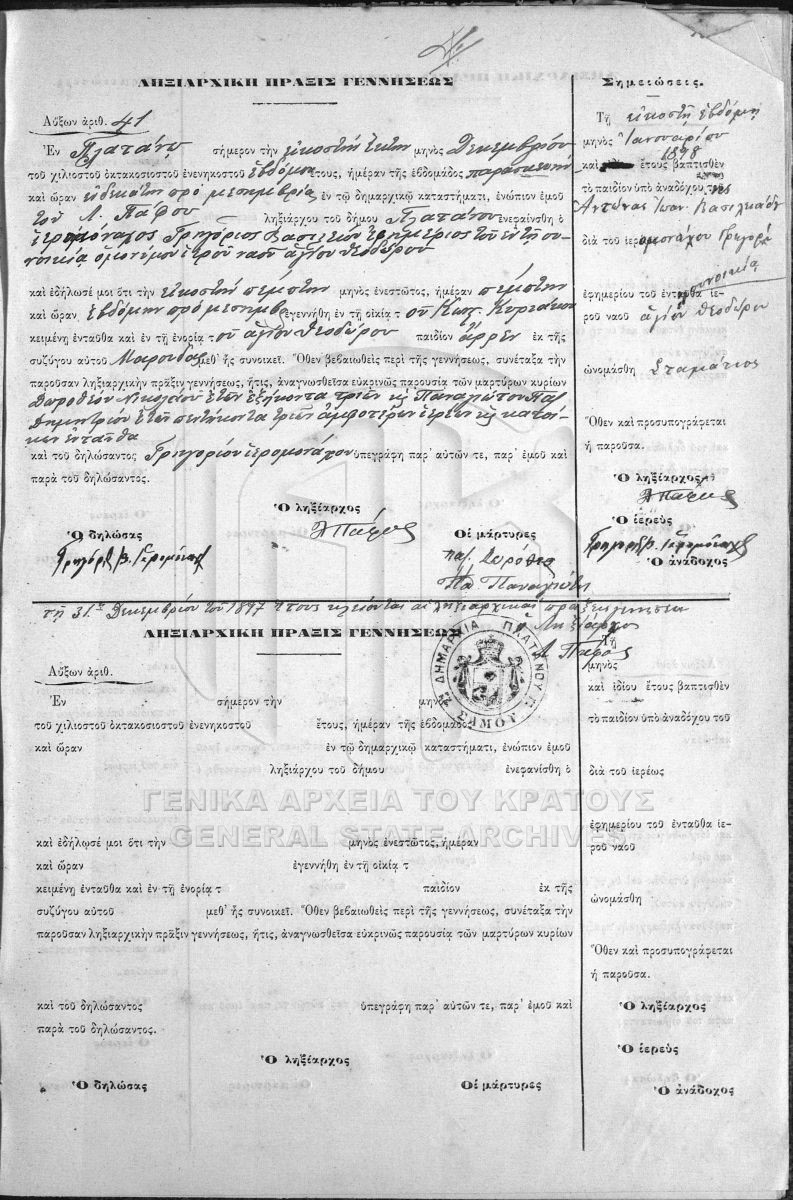 ΛΗΞΙΑΡΧΙΚΗ ΠΡΑΞΙΣ ΓΕΝΝΗΣΕΩΣ
Αὔξων ἀριθ. 41
Ἐν Πλατάνῳ σήμερον τὴν εἰκοστὴν ἕκτην μηνὸς Δεκεμβρίου
τοῦ χιλιοστοῦ ὀκτακοσιοστοῦ ἐνενηκοστοῦ ἑβδόμου ἔτους, ἡμέραν τῆς ἑβδομάδος παρασκευὴν
καὶ ὥραν ἑνδεκάτην πρὸ μεσημβρίας ἐν τῷ δημαρχικῷ καταστήματι, ἐνώπιον ἐμοῦ
τοῦ Λ. Πάφου ληξιάρχου τοῦ δήμου Πλατάνου ἐνεφανίσθη ὁ
ἱερομόναχος Γρηγόριος Βασιλείου ἐφημέριος τοῦ ἐν τῇ συ-
νοικίᾳ ὁμωνύμου ἱεροῦ ναοῦ ἁγίου Θεοδώρου
καὶ ἐδήλωσέ μοι ὅτι τὴν εἰκοστὴν πέμπτην μηνὸς ἐνεστῶτος, ἡμέραν πέμπτην
καὶ ὥραν ἑβδόμην πρὸ μεσημβ. ἐγεννήθη ἐν τῇ οἰκίᾳ τοῦ Κωνς. Κυριάκου
κειμένῃ ἐνταῦθα καὶ ἐν τῇ ἐνορίᾳ τοῦ ἁγίου Θεοδώρου παιδίον ἄρρεν ἐκ τῆς
συζύγου αὐτοῦ Μαρουδας μεθ' ἧς συνοικεῖ. Ὅθεν βεβαιωθεὶς περὶ τῆς γεννήσεως, συνέταξα τὴν
παροῦσαν ληξιαρχικὴν πρᾶξιν γεννήσεως, ἥτις, ἀναγνωσθεῖσα εὐκρινῶς παρουσίᾳ τῶν μαρτύρων κυρίων
Δωροθέου Νικολάου ἐτῶν ἑξήκοντα τριῶν κ Παναγιώτου Παπ
Δημητρίου ἐτῶν πεντήκοντα τριῶν ἀμφοτέρων ἱερέων κ κατοί-
κων ἐνταῦθα
καὶ τοῦ δηλώσαντος Γρηγορίου ἱερομονάχου ὑπεγράφη παρ' αὐτῶν τε, παρ' ἐμοῦ καὶ
παρὰ τοῦ δηλώσαντος.
Ὁ ληξίαρχος
Λ Πάφος
Ὁ δηλώσας
Οἱ μάρτυρες
Γρηγόρ. Β. Ἱερομόναχ
παπ. Δωρόθεος
Πα. Παναγιώτης
Σημειώσεις.
Τῇ εἰκοστῇ ἑβδόμῃ
μηνὸς Ἰανουαρίου
1898
καὶ ἔτους βαπτισθὲν
τὸ παιδίον ὑπὸ ἀναδόχου της
Ἀντώνας Ἰωαν. Βασιλειάδου
διὰ τοῦ ἱερομονάχου Γρηγορίου
συνοικίᾳ
ἐφημερίου τοῦ ἐνταῦθα ἱε-
ροῦ ναοῦ ἁγίου Θεοδώρου
ὠνομάσθη Σταμάτιος
Ὅθεν καὶ προσυπογράφεται
ἡ παροῦσα.
Ὁ ληξίαρχος
Λ Πάφος
Ὁ ἱερεὺς
Γρηγόρ. Β. Ἱερομόναχ
Ὁ ἀνάδοχος
τῇ 31ῃ Δεκεμβρίου τοῦ 1897 ἔτους κλείονται αἱ ληξιαρχικαὶ πράξεις γεννήσεων
Ὁ Ληξίαρχος
Λ Πάφος
ΔΗΜΑΡΧΙΑ ΠΛΑΤΑΝΟΥ
ΣΑΜΟΥ
ΛΗΞΙΑΡΧΙΚΗ ΠΡΑΞΙΣ ΓΕΝΝΗΣΕΩΣ
Αὔξων ἀριθ.
Ἐν σήμερον τὴν μηνὸς
τοῦ χιλιοστοῦ ὀκτακοσιοστοῦ ἐνενηκοστοῦ ἔτους, ἡμέραν τῆς ἑβδομάδος
καὶ ὥραν ἐν τῷ δημαρχικῷ καταστήματι, ἐνώπιον ἐμοῦ
ληξιάρχου τοῦ δήμου ἐνεφανίσθη ὁ
ΓΕΝΙΚΑ ΑΡΧΕΙΑ ΤΟΥ ΚΡΑΤΟΥΣ
GENERAL STATE ARCHIVES
καὶ ἐδήλωσέ μοι ὅτι τὴν μηνὸς ἐνεστῶτος, ἡμέραν
καὶ ὥραν ἐγεννήθη ἐν τῇ οἰκίᾳ τ
κειμένῃ ἐνταῦθα καὶ ἐν τῇ ἐνορίᾳ τ παιδίον ἐκ τῆς
συζύγου αὐτοῦ μεθ' ἧς συνοικεῖ. Ὅθεν βεβαιωθεὶς περὶ τῆς γεννήσεως, συνέταξα τὴν
παροῦσαν ληξιαρχικὴν πρᾶξιν γεννήσεως, ἥτις, ἀναγνωσθεῖσα εὐκρινῶς παρουσίᾳ τῶν μαρτύρων κυρίων
καὶ τοῦ δηλώσαντος ὑπεγράφη παρ' αὐτῶν τε, παρ' ἐμοῦ καὶ
παρὰ τοῦ δηλώσαντος.
Ὁ ληξίαρχος
Ὁ δηλώσας
Οἱ μάρτυρες
Τῇ
μηνὸς
καὶ ἰδίου ἔτους βαπτισθὲν
τὸ παιδίον ὑπὸ ἀναδόχου τοῦ
διὰ τοῦ ἱερέως
ἐφημερίου τοῦ ἐνταῦθα ἱε-
ροῦ ναοῦ
ὠνομάσθη
Ὅθεν καὶ προσυπογράφεται
ἡ παροῦσα.
Ὁ ληξίαρχος
Ὁ ἱερεὺς
Ὁ ἀνάδοχος